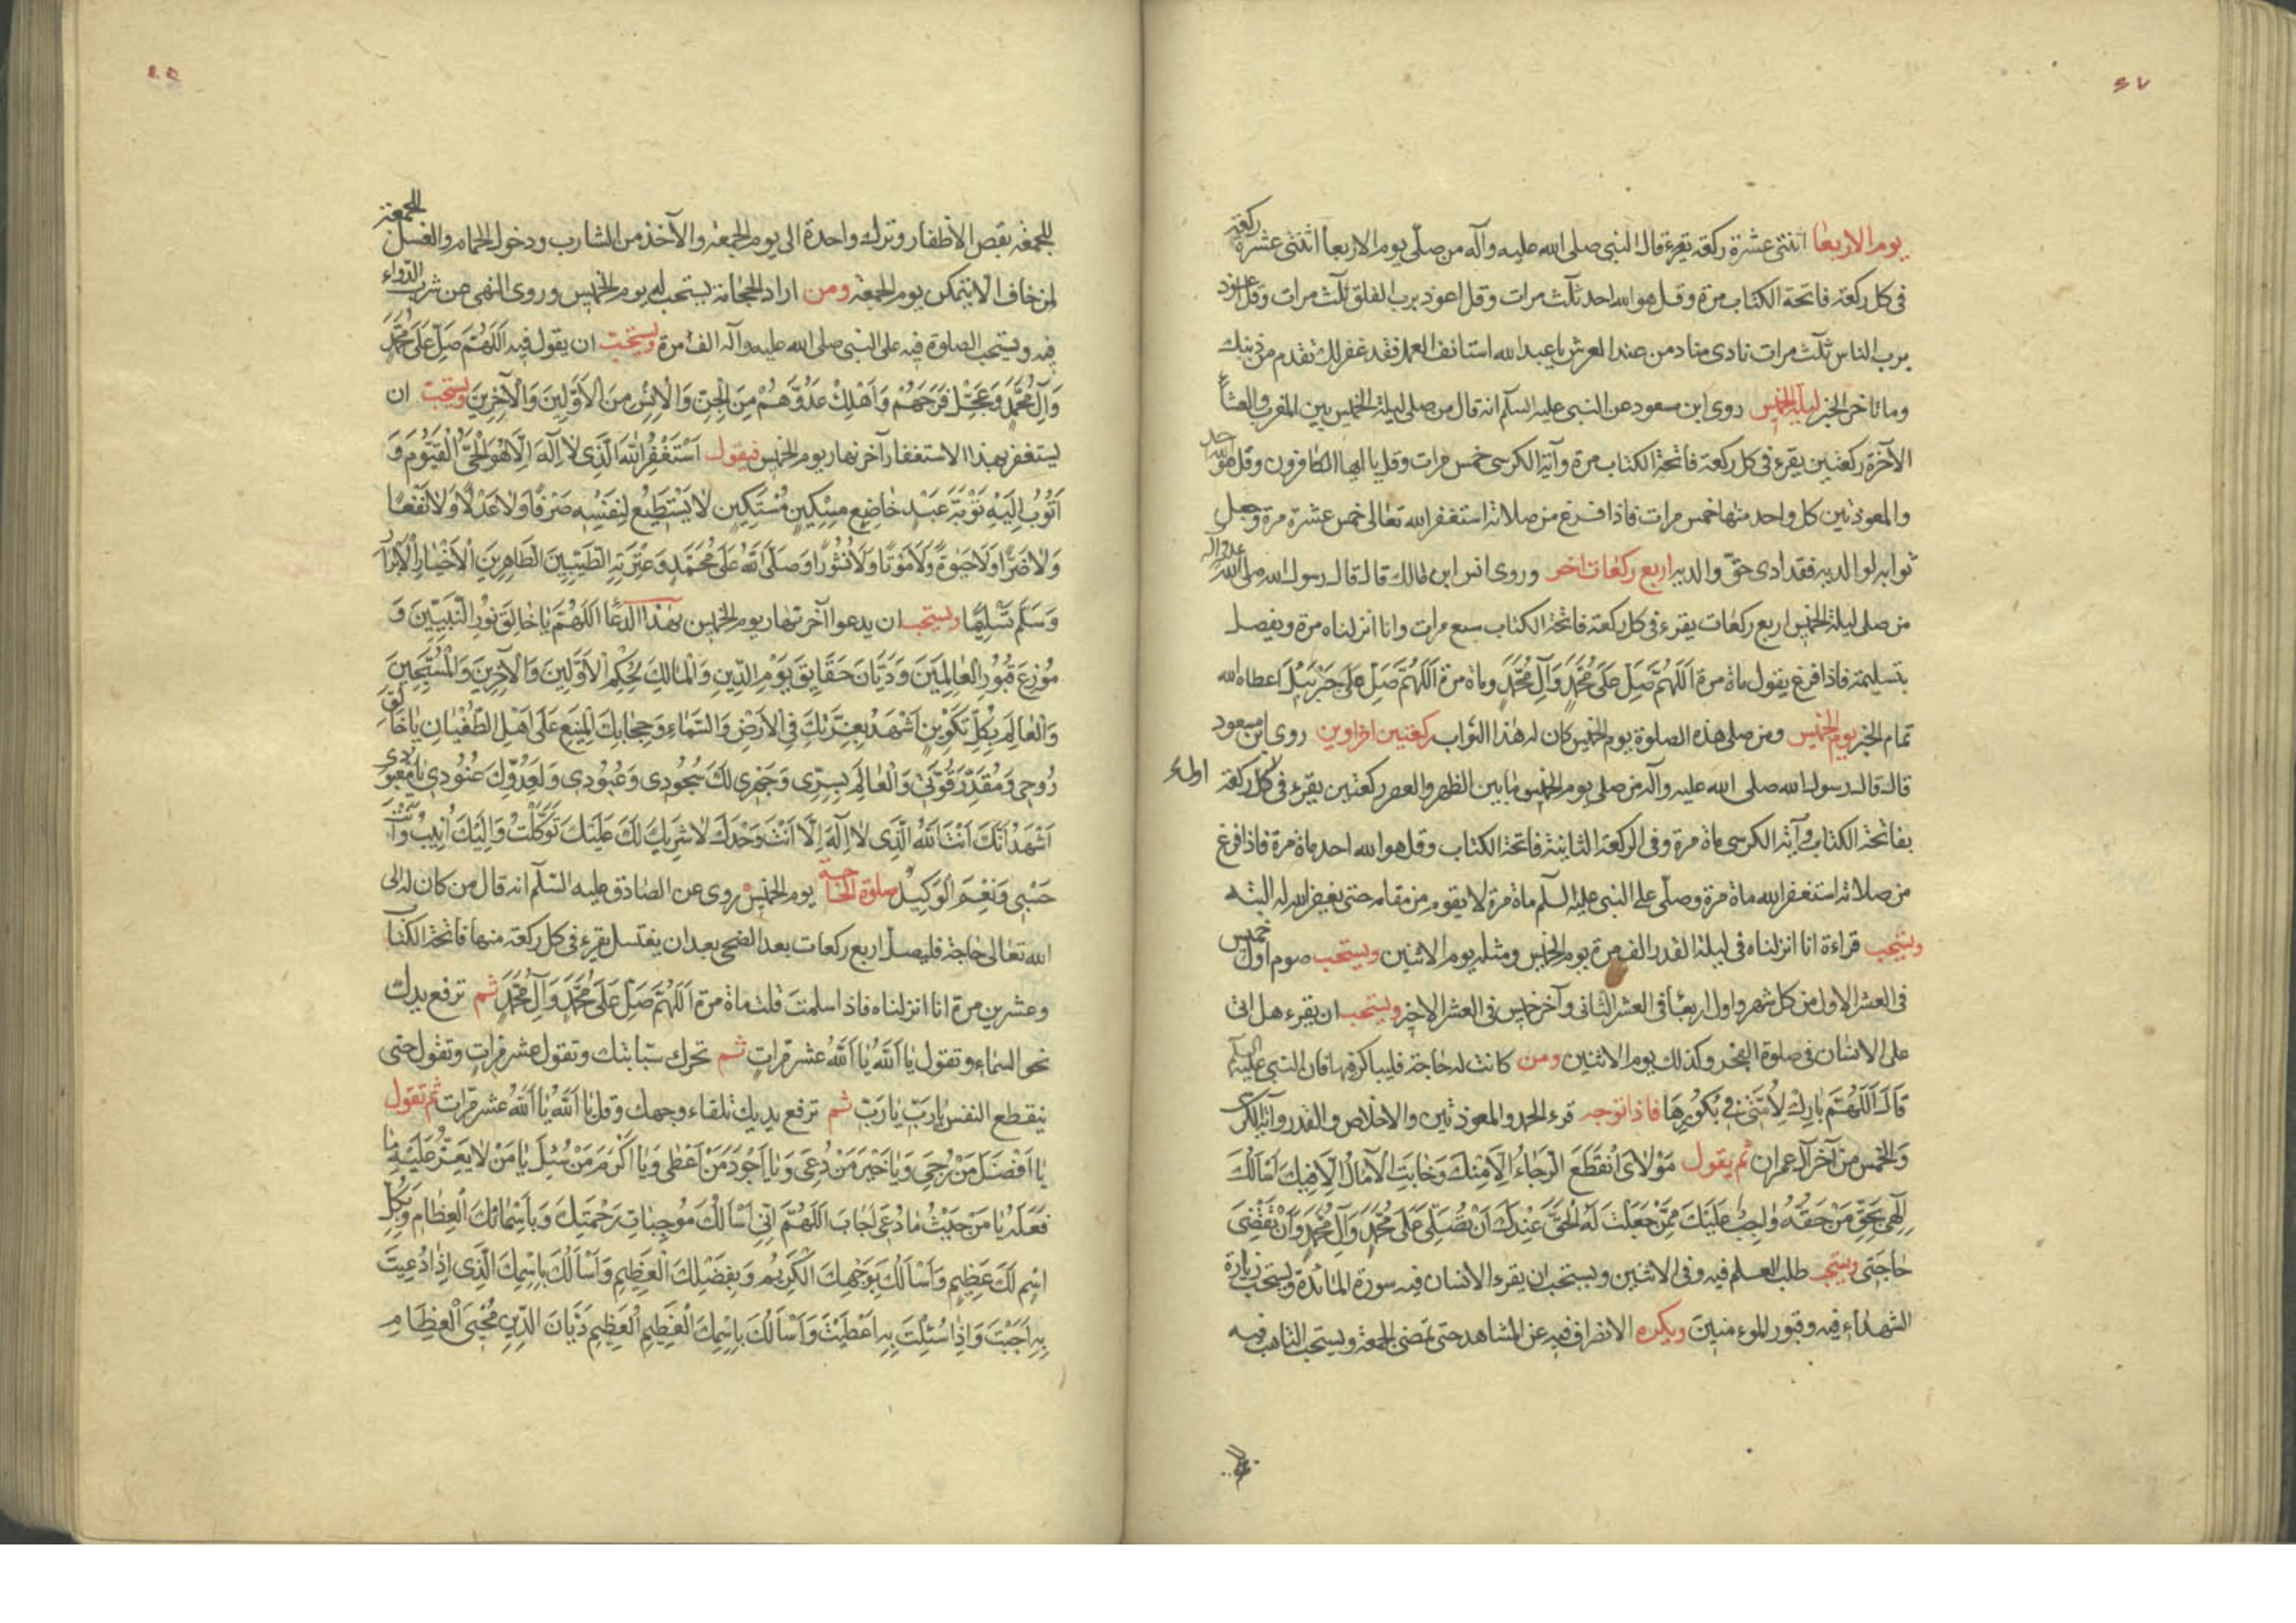 يوم الاربعا اثنتى عشرة ركعة يقرء قال النبى صلى الله عليه وآله من صلّى يوم الاربعا اثنتى عشرة ركعة
فى كل ركعة فاتحة الكتاب مرة وقل هو الله احد ثلث مرات وقل اعوذ برب الفلق ثلث مرات وقل اعوذ
برب الناس ثلث مرات نادى مناد من عند العرش يا عبد الله استانف العمل فقد غفر لك ما تقدم من ذنبك
وما تاخر الخبر ليلة الخميس روى ابن مسعود عن النبى عليه السلم انه قال من صلى ليلة الخميس بين المغرب والعشاء
الآخرة ركعتين يقرء فى كل ركعة فاتحة الكتاب مرة وآية الكرسى خمس مرات وقل يا ايها الكافرون وقل هو الله احد
والمعوذتين كل واحد منها خمس مرات فاذا فرغ من صلاته استغفر الله تعالى خمس عشرة مرة وجعل
ثوابه لوالديه فقد ادى حق والديه اربع ركعات اخر وروى انس ابن مالك قال قال رسول الله صلى الله عليه وآله
من صلى ليلة الخميس اربع ركعات يقرء فى كل ركعة فاتحة الكتاب سبع مرات وانا انزلناه مرة ويفصل
بتسليمة فاذا فرغ يقول ماة مرة اَللّهُمَّ صَلِّ عَلى مُحَمَّدٍ وَآلِ مُحَمَّدٍ وماة مرة اَللّهُمَّ صَلِّ عَلى جَبْرَئِيلَ اعطاه الله
تمام الخبر يوم الخميس ومن صلى هذه الصلوة يوم الخميس كان له هذا الثواب ركعتين اخراوين روى ابن مسعود
قال قال رسول الله صلى الله عليه وآله من صلى يوم الخميس ما بين الظهر والعصر ركعتين يقرء فى كل ركعة اولى
بفاتحة الكتاب وآية الكرسى ماة مرة وفى الركعة الثانية فاتحة الكتاب وقل هو الله احد ماة مرة فاذا فرغ
من صلاته استغفر الله ماة مرة وصلّى على النبى عليه السلم ماة مرة لا يقوم من مقامه حتى يغفر الله له البتة
ويستحب قراءة انا انزلناه فى ليلة القدر الف مرة يوم الخميس ومثله يوم الاثنين ويستحب صوم اول خميس
فى العشر الاول من كل شهر واول اربعا فى العشر الثانى وآخر خميس فى العشر الاخير ويستحب ان يقرء هل اتى
على الانسان فى صلوة الفجر وكذلك يوم الاثنين ومن كانت له حاجة فليباكر فيها فان النبى عليه السلم
قال اَللّهُمَّ بارِكْ لِاُمَّتي في بُكُورِها فاذا توجه قرء الحمد والمعوذتين والاخلاص والقدر وآية الكرسى
والخمس من آخر آل عمران ثم يقول مَوْلاىَ انْقَطَعَ الرَّجاءُ اِلّا مِنْكَ وَخابَتِ الْآمالُ اِلّا فيكَ اَسْاَلُكَ
اِلهي بِحَقِّ مَنْ حَقُّهُ واجِبٌ عَلَيْكَ مِمَّنْ جَعَلْتَ لَهُ الْحَقَّ عِنْدَكَ اَنْ تُصَلِّىَ عَلى مُحَمَّدٍ وَآلِ مُحَمَّدٍ وَاَنْ تَقْضِىَ
حاجَتي ويستحب طلب العلم فيه وفى الاثنين ويستحب ان يقرء الانسان فيه سورة المائدة ويستحب زيارة
الشهداء فيه وقبور المؤمنين ويكره الانصراف فيه عن المشاهد حتى تمضى الجمعة ويستحب التاهب فيه
للجمعة بقص الاظفار وترك واحدة الى يوم الجمعة والاخذ من الشارب ودخول الحمام والغسل للجمعة
لمن خاف الا يتمكن يوم الجمعة ومن اراد الحجامة يستحب له يوم الخميس وروى النهى عن شرب الدّواء
فيه ويستحب الصلوة فيه على النبى صلى الله عليه وآله الف مرة ويستحبّ ان يقول فيه اَللّهُمَّ صَلِّ عَلى مُحَمَّدٍ
وَآلِ مُحَمَّدٍ وَعَجِّلْ فَرَجَهُمْ وَاَهْلِكْ عَدُوَّهُمْ مِنَ الْجِنِّ وَالْاِنْسِ مِنَ الْاَوَّلينَ وَالْآخِرينَ ويستحب ان
يستغفر بهذا الاستغفار آخر نهار يوم الخميس فيقول اَسْتَغْفِرُ اللهَ الَّذي لا اِلهَ اِلّا هُوَ الْحَىُّ الْقَيُّومُ وَ
اَتُوبُ اِلَيْهِ تَوْبَةَ عَبْدٍ خاضِعٍ مِسْكينٍ مُسْتَكينٍ لا يَسْتَطيعُ لِنَفْسِهِ صَرْفًا وَلا عَدْلًا وَلا نَفْعًا
وَلا ضَرًّا وَلا حَيوةً وَلا مَوْتًا وَلا نُشُورًا وَصَلَّى اللهُ عَلى مُحَمَّدٍ وَعِتْرَتِهِ الطَّيِّبينَ الطّاهِرينَ الْاَخْيارِ الْاَبْرارِ
وَسَلَّمَ تَسْليمًا ويستحب ان يدعوا آخر نهار يوم الخميس بهذا الدعا اَللّهُمَّ يا خالِقَ نُورِ النَّبِيّينَ وَ
مُوزِعَ قُبُورِ الْعالَمينَ وَدَيّانَ حَقايِقِ يَوْمِ الدّينِ وَالْمالِكَ لِحُكْمِ الْاَوَّلينَ وَالْآخِرينَ وَالْمُسَبِّحينَ
وَالْعالِمَ بِكُلِّ تَكْوينٍ اَشْهَدُ بِعِزَّتِكَ فِى الْاَرْضِ وَالسَّماءِ وَحِجابِكَ الْمَنيعِ عَلى اَهْلِ الطُّغْيانِ يا خالِقَ
رُوحي وَمُقَدِّرَ قُوَّتي وَالْعالِمَ بِسِرّي وَجَهْري لَكَ سُجُودي وَعُبُودي وَلِعَدُوِّكَ عُنُودي يا مَعْبُودي
اَشْهَدُ اَنَّكَ اَنْتَ اللهُ الَّذي لا اِلهَ اِلّا اَنْتَ وَحْدَكَ لا شَريكَ لَكَ عَلَيْكَ تَوَكَّلْتُ وَاِلَيْكَ اُنيبُ وَاَنْتَ
حَسْبي وَنِعْمَ الْوَكيلُ صلوة الحاجة يوم الخميس روى عن الصادق عليه السّلم انه قال من كان له الى
الله تعالى حاجة فليصلّ اربع ركعات بعد الضحى بعد ان يغتسل يقرء فى كل ركعة منها فاتحة الكتاب
وعشرين مرة انا انزلناه فاذا سلمت قلت ماة مرة اَللّهُمَّ صَلِّ عَلى مُحَمَّدٍ وَآلِ مُحَمَّدٍ ثم ترفع يديك
نحو السماء وتقول يا اَللهُ يا اَللهُ عشر مرات ثم تحرك سبّابتك وتقول عشر مرات وتقول حتى
ينقطع النفس يا رَبِّ يا رَبِّ ثم ترفع يديك تلقاء وجهك وقل يا اَللهُ يا اَللهُ عشر مرات ثم تقول
يا اَفْضَلَ مَنْ رُجِىَ وَيا خَيْرَ مَنْ دُعِىَ وَيا اَجْوَدَ مَنْ اَعْطى وَيا اَكْرَمَ مَنْ سُئِلَ يا مَنْ لا يَعِزُّ عَلَيْهِ ما
فَعَلَهُ يا مَنْ حَيْثُ ما دُعِىَ اَجابَ اَللّهُمَّ اِنّي اَسْاَلُكَ مُوجِباتِ رَحْمَتِكَ وَبِاَسْمائِكَ الْعِظامِ وَبِكُلِّ
اسْمٍ لَكَ عَظيمٍ وَاَسْاَلُكَ بِوَجْهِكَ الْكَريمِ وَبِفَضْلِكَ الْعَظيمِ وَاَسْاَلُكَ بِاسْمِكَ الَّذي اِذا دُعيتَ
بِهِ اَجَبْتَ وَاِذا سُئِلْتَ بِهِ اَعْطَيْتَ وَاَسْاَلُكَ بِاسْمِكَ الْعَظيمِ الْعَظيمِ دَيّانَ الدّينِ مُحْيِىَ الْعِظامِ